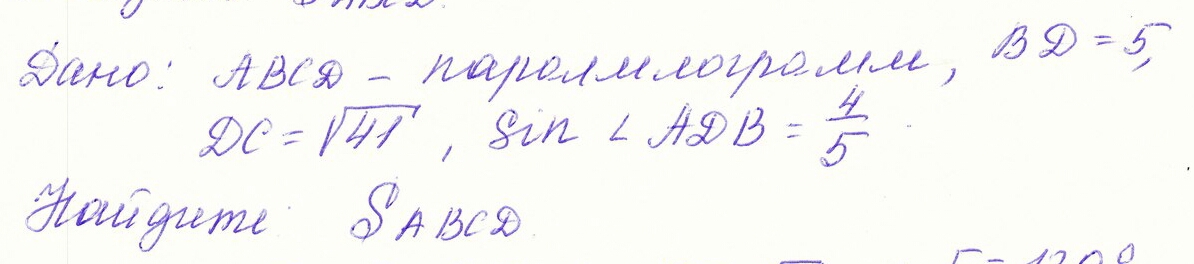 Дано: ABCD - паролмлограмм, BD = 5,
DC = √41, Sin ∠ ADB = 4/5
Найдите SABCD